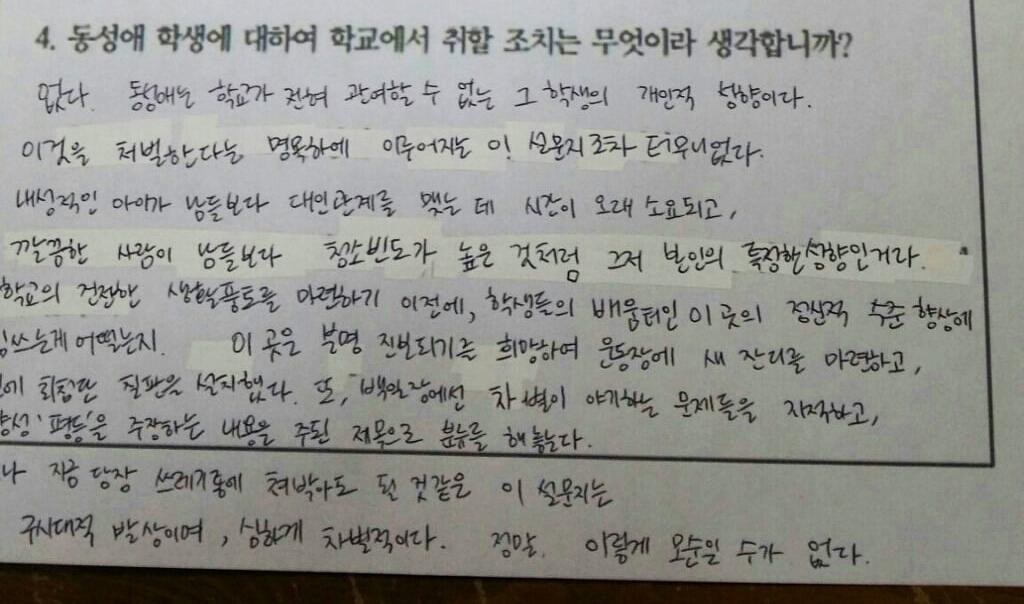 4. 동성애 학생에 대하여 학교에서 취할 조치는 무엇이라 생각합니까?
없다. 동성애는 학교가 전혀 관여할 수 없는 그 학생의 개인적 성향이다.
이것을 처벌한다는 명목하에 이루어지는 이 설문지조차 터무니없다.
내성적인 아이가 남들보다 대인관계를 맺는 데 시간이 오래 소요되고,
깔끔한 사람이 남들보다 청소빈도가 높은 것처럼 그저 본인의 특정한 성향인거라.
학교의 건전한 생활풍토를 마련하기 이전에, 학생들의 배움터인 이 곳의 정신적 수준 향상에
힘쓰는게 어떨는지. 이 곳은 분명 진보되기를 희망하여 운동장에 새 잔디를 마련하고,
에 최첨단 칠판을 설치했다. 또, 백일장에선 차별이 야기하는 문제들을 지적하고,
양성 '평등'을 주장하는 내용을 주된 제목으로 분류를 해놓는다.
나 지금 당장 쓰레기통에 쳐박아도 될 것같은 이 설문지는
구시대적 발상이며, 심하게 차별적이다. 정말. 이렇게 모순일 수가 없다.